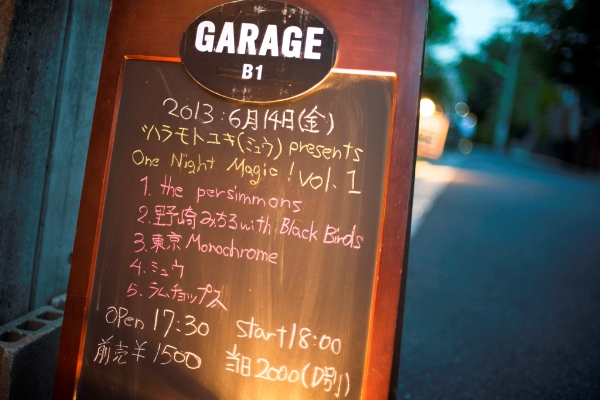 GARAGE
B1
2013.6月14日(金)
ツルモトユキ(ミュウ) presents
One Night Magic! vol. 1
1. the persimmons
2. 野崎みちる with Black Birds
3. 東京 Monochrome
4. ミュウ
5. ラムチョップス
open 17:30 start 18:00
前売¥1500 当日2000(D別)